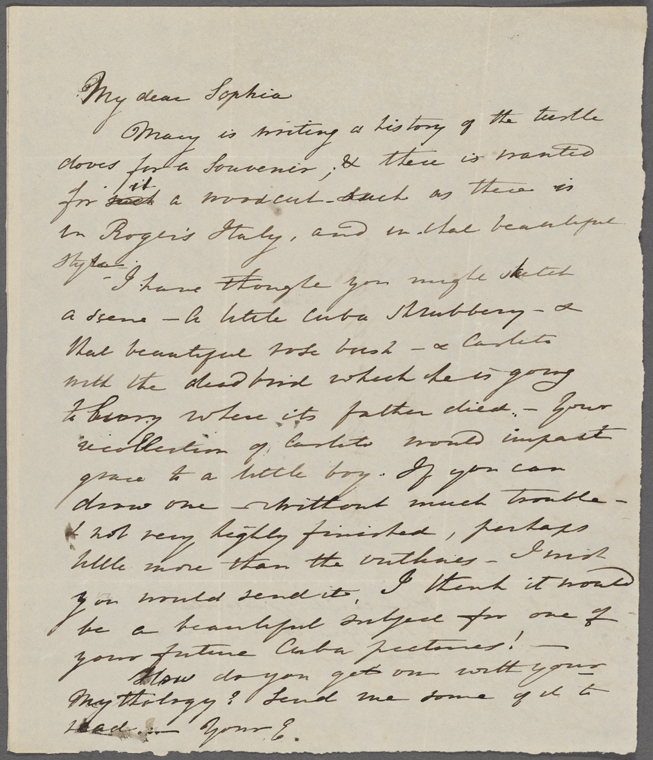 My dear Sophia
Mary is writing a history of the turtle
doves for a Souvenir; & there is wanted
for such it a woodcut such as there is
in Rogers Italy, and in that beautiful
style -
I have thought you might sketch
a scene - A little Cuba Shrubbery - &
that beautiful rose bush - & Carlito
with the dead bird which he is going
to bury where its father died. - Your
recollection of Carlito would impart
grace to a little boy. If you can
draw one - without much trouble -
& not very highly finished, perhaps
little more than the outlines - I wish
you would send it. I think it would
be a beautiful subject for one of
your future Cuba pictures! -
How do you get on with your
Mythology? Send me some of it to
read. - Your E.